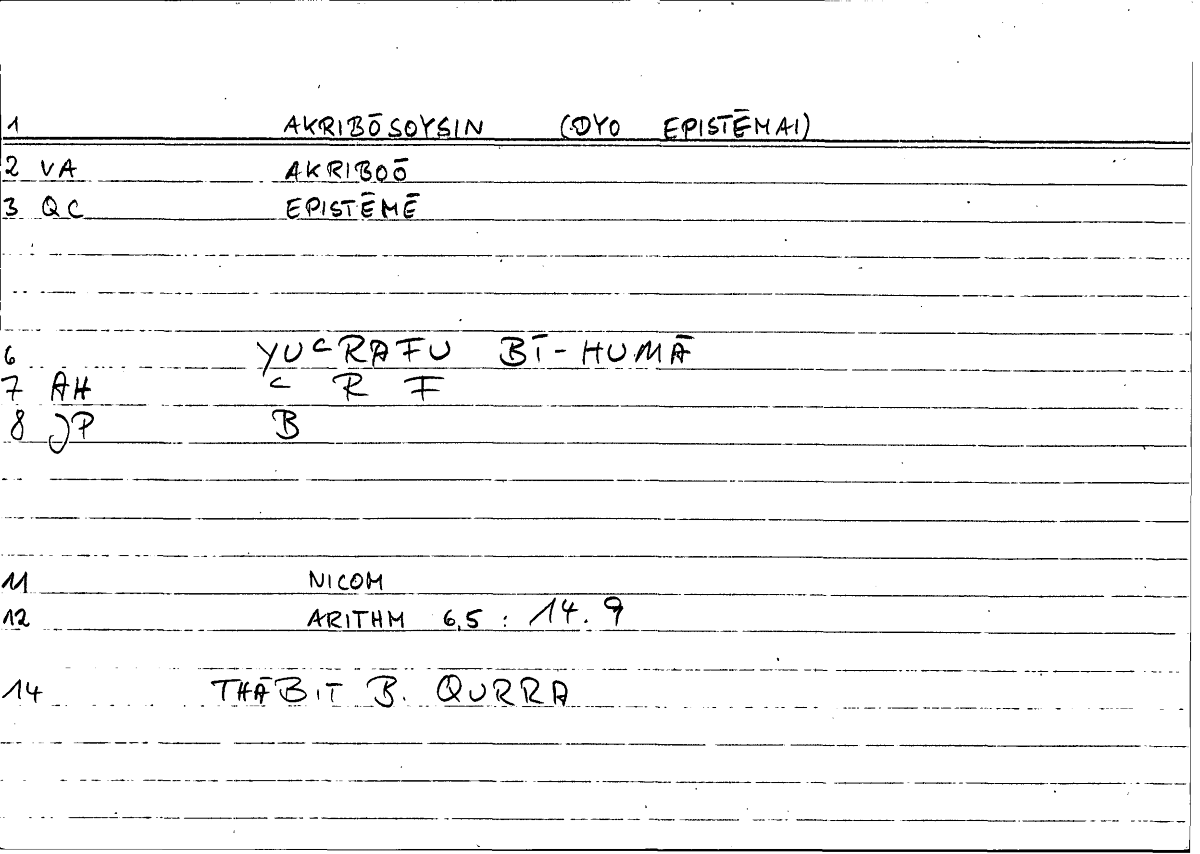 1 AKRIBŌSOYSIN (DYO EPISTĒMAI)
2 VA AKRIBOŌ
3 QC EPISTĒMĒ
6 YUᶜRAFU BĪ-HUMĀ
7 AH ᶜ R F
8 JP B
11 NICOM
12 ARITHM 6,5 : 14.9
14 THĀBIT B. QURRA